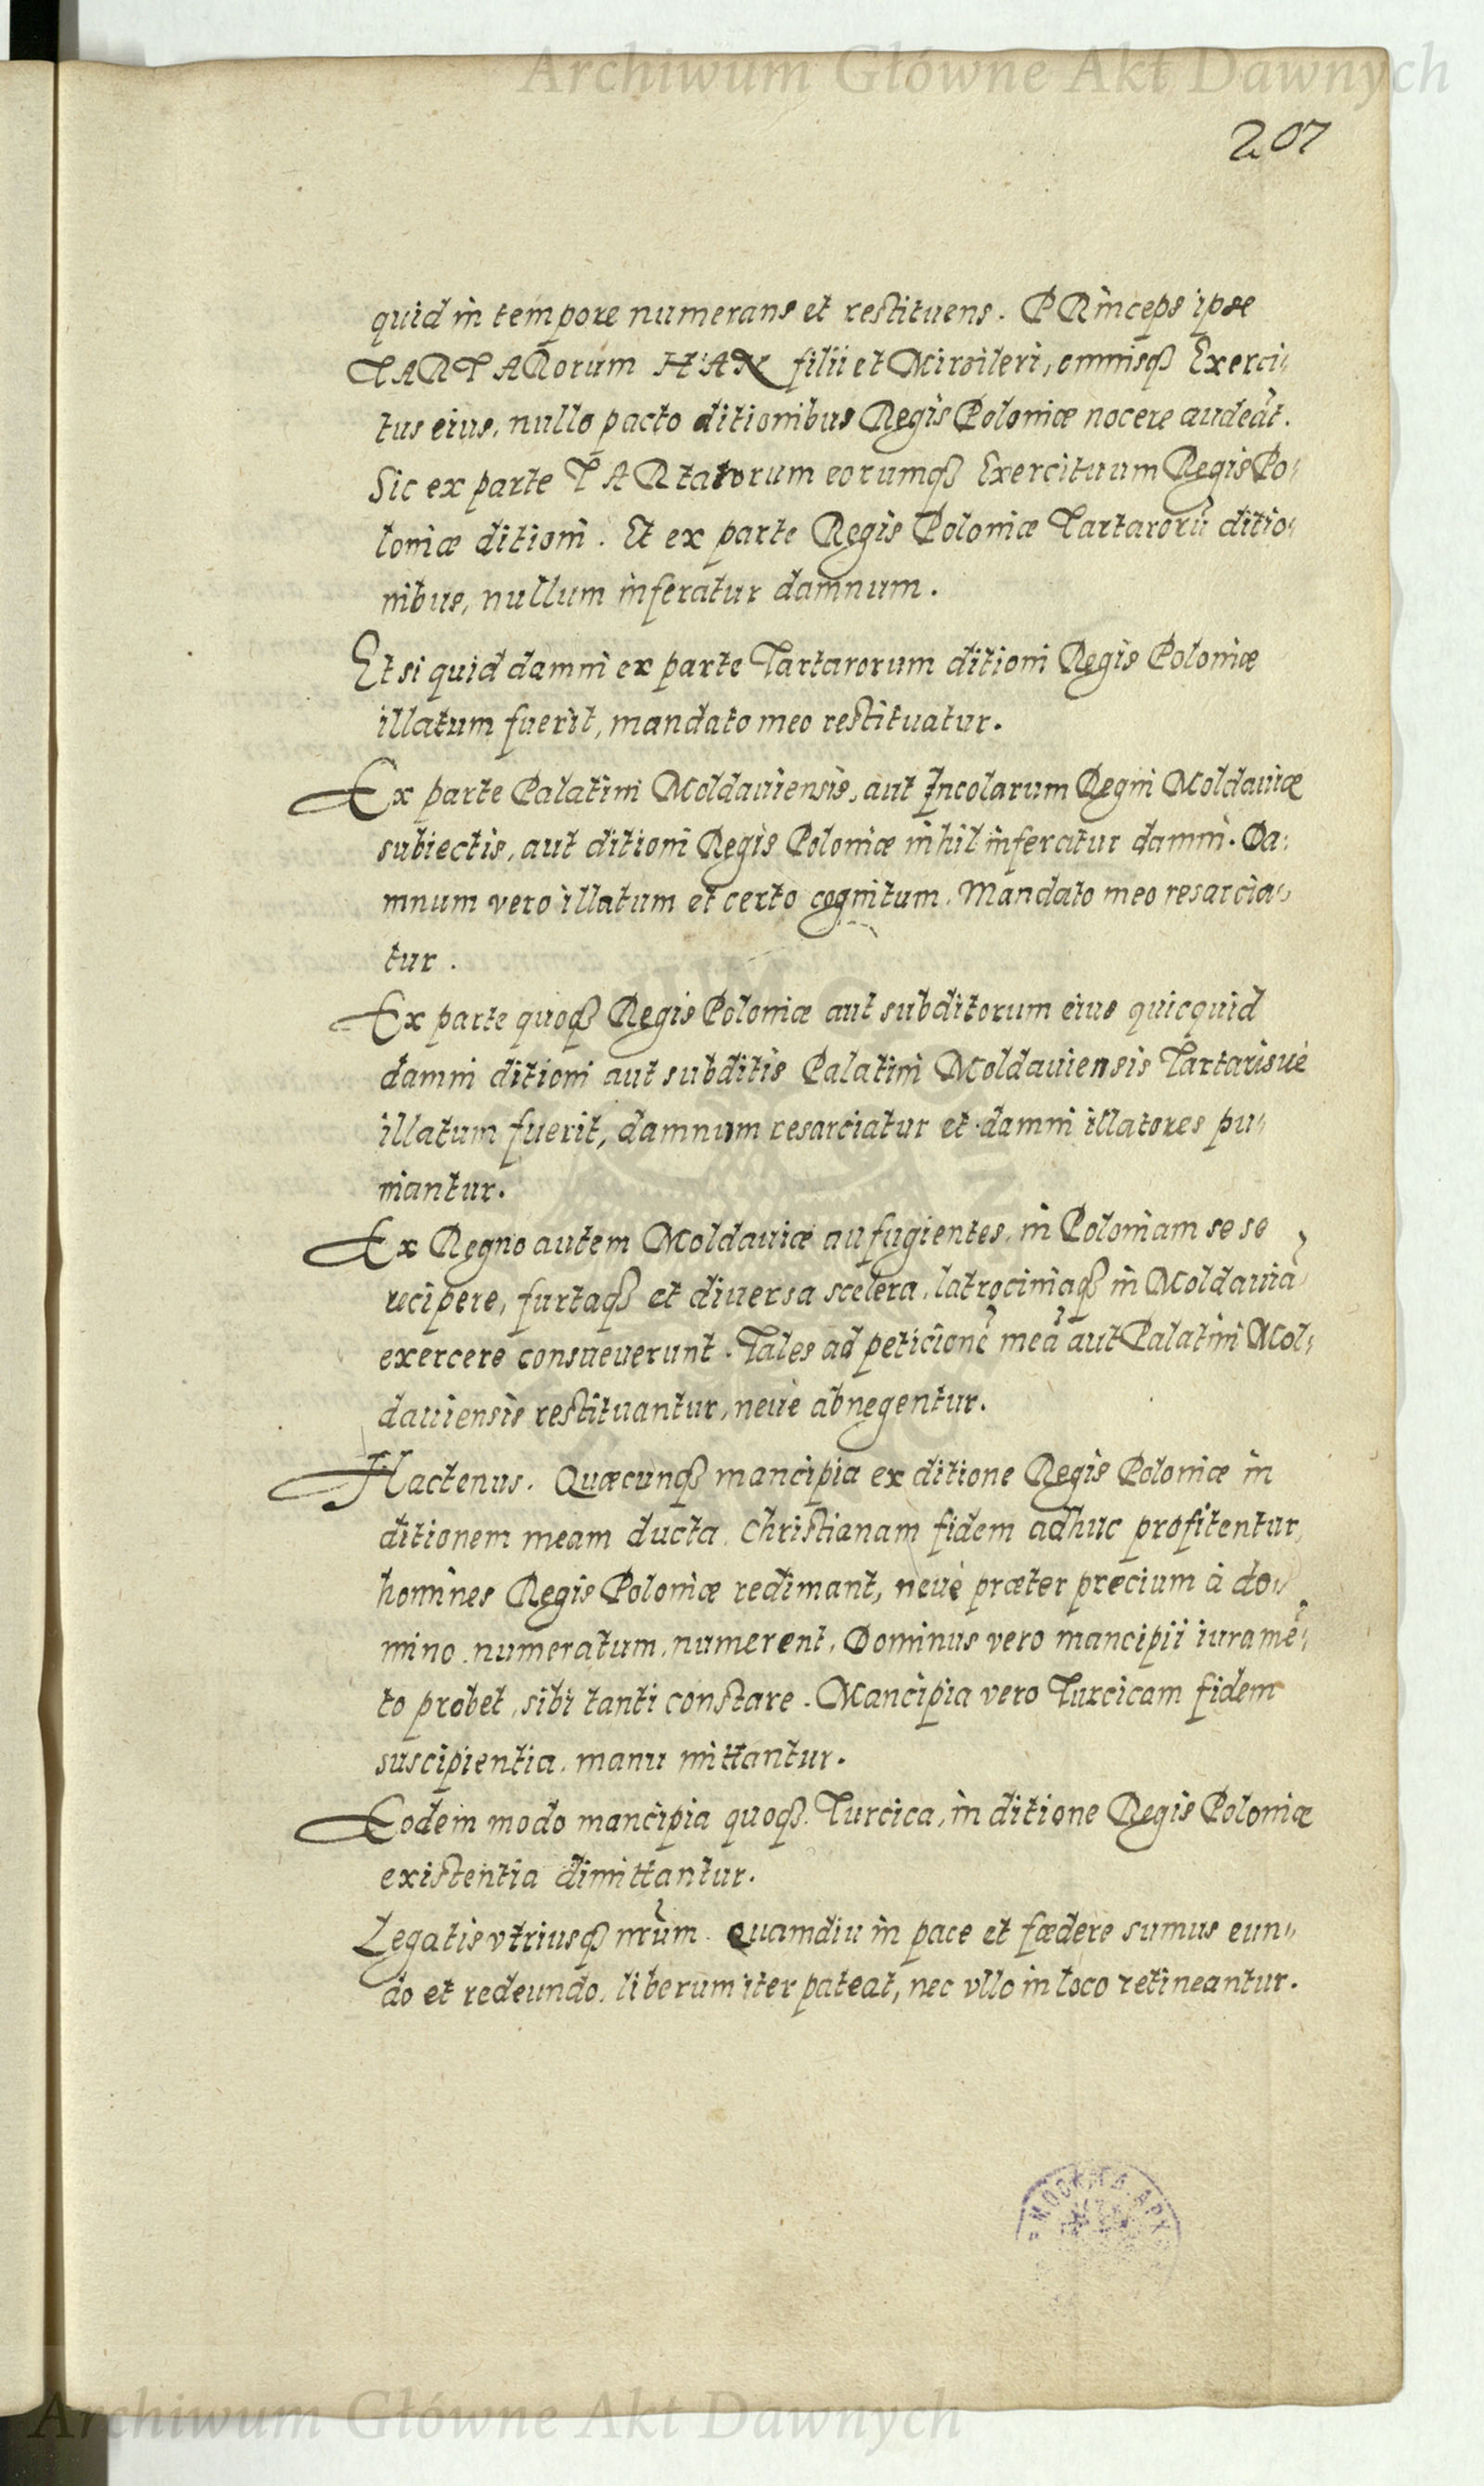 Archiwum Główne Akt Dawnych
207
quid in tempore numerans et restituens. PRinceps ipse
TARTARorum HAN filii et Mirzileri, omnisqȝ Exerci-
tus eius, nullo pacto ditionibus Regis Poloniæ nocere audeãt.
Sic ex parte TARtarorum eorumqȝ Exercituum Regis Po-
loniæ ditioni. Et ex parte Regis Poloniæ Tartarorũ ditio-
nibus, nullum inferatur damnum.
Et si quid damni ex parte Tartarorum ditioni Regis Poloniæ
illatum fuerit, mandato meo restituatur.
Ex parte Palatini Moldauiensis, aut Incolarum Regni Moldauiæ
subiectis, aut ditioni Regis Poloniæ nihil inferatur damni. Da-
mnum vero illatum et certo cognitum. Mandato meo resarcia-
tur.
Ex parte quoqȝ Regis Poloniæ aut subditorum eius quicquid
damni ditioni aut subditis Palatini Moldauiensis Tartarisuè
illatum fuerit, damnum resarciatur et damni illatores pu-
niantur.
Ex Regno autem Moldauiæ aufugientes, in Poloniam se se
recipere, furtaqȝ et diuersa scelera, latrociniaqȝ in Moldauiã
exercere consueuerunt. Tales ad peticionẽ meã aut Palatini Mol-
dauiensis restituantur, neuè abnegentur.
Hactenus. Quæcunqȝ mancipia ex ditione Regis Poloniæ in
ditionem meam ducta, Christianam fidem adhuc profitentur,
homines Regis Poloniæ redimant, neuè præter precium à do-
mino numeratum, numerent, Dominus vero mancipii iuramẽ-
to probet, sibi tanti constare. Mancipia vero Turcicam fidem
suscipientia, manu mittantur.
Eodem modo mancipia quoqȝ Turcica, in ditione Regis Poloniæ
existentia dimittantur.
Legatis vtriusqȝ nrũm. Quamdiu in pace et fœdere sumus eun-
do et redeundo, liberum iter pateat, nec vllo in loco retineantur.
Archiwum Główne Akt Dawnych